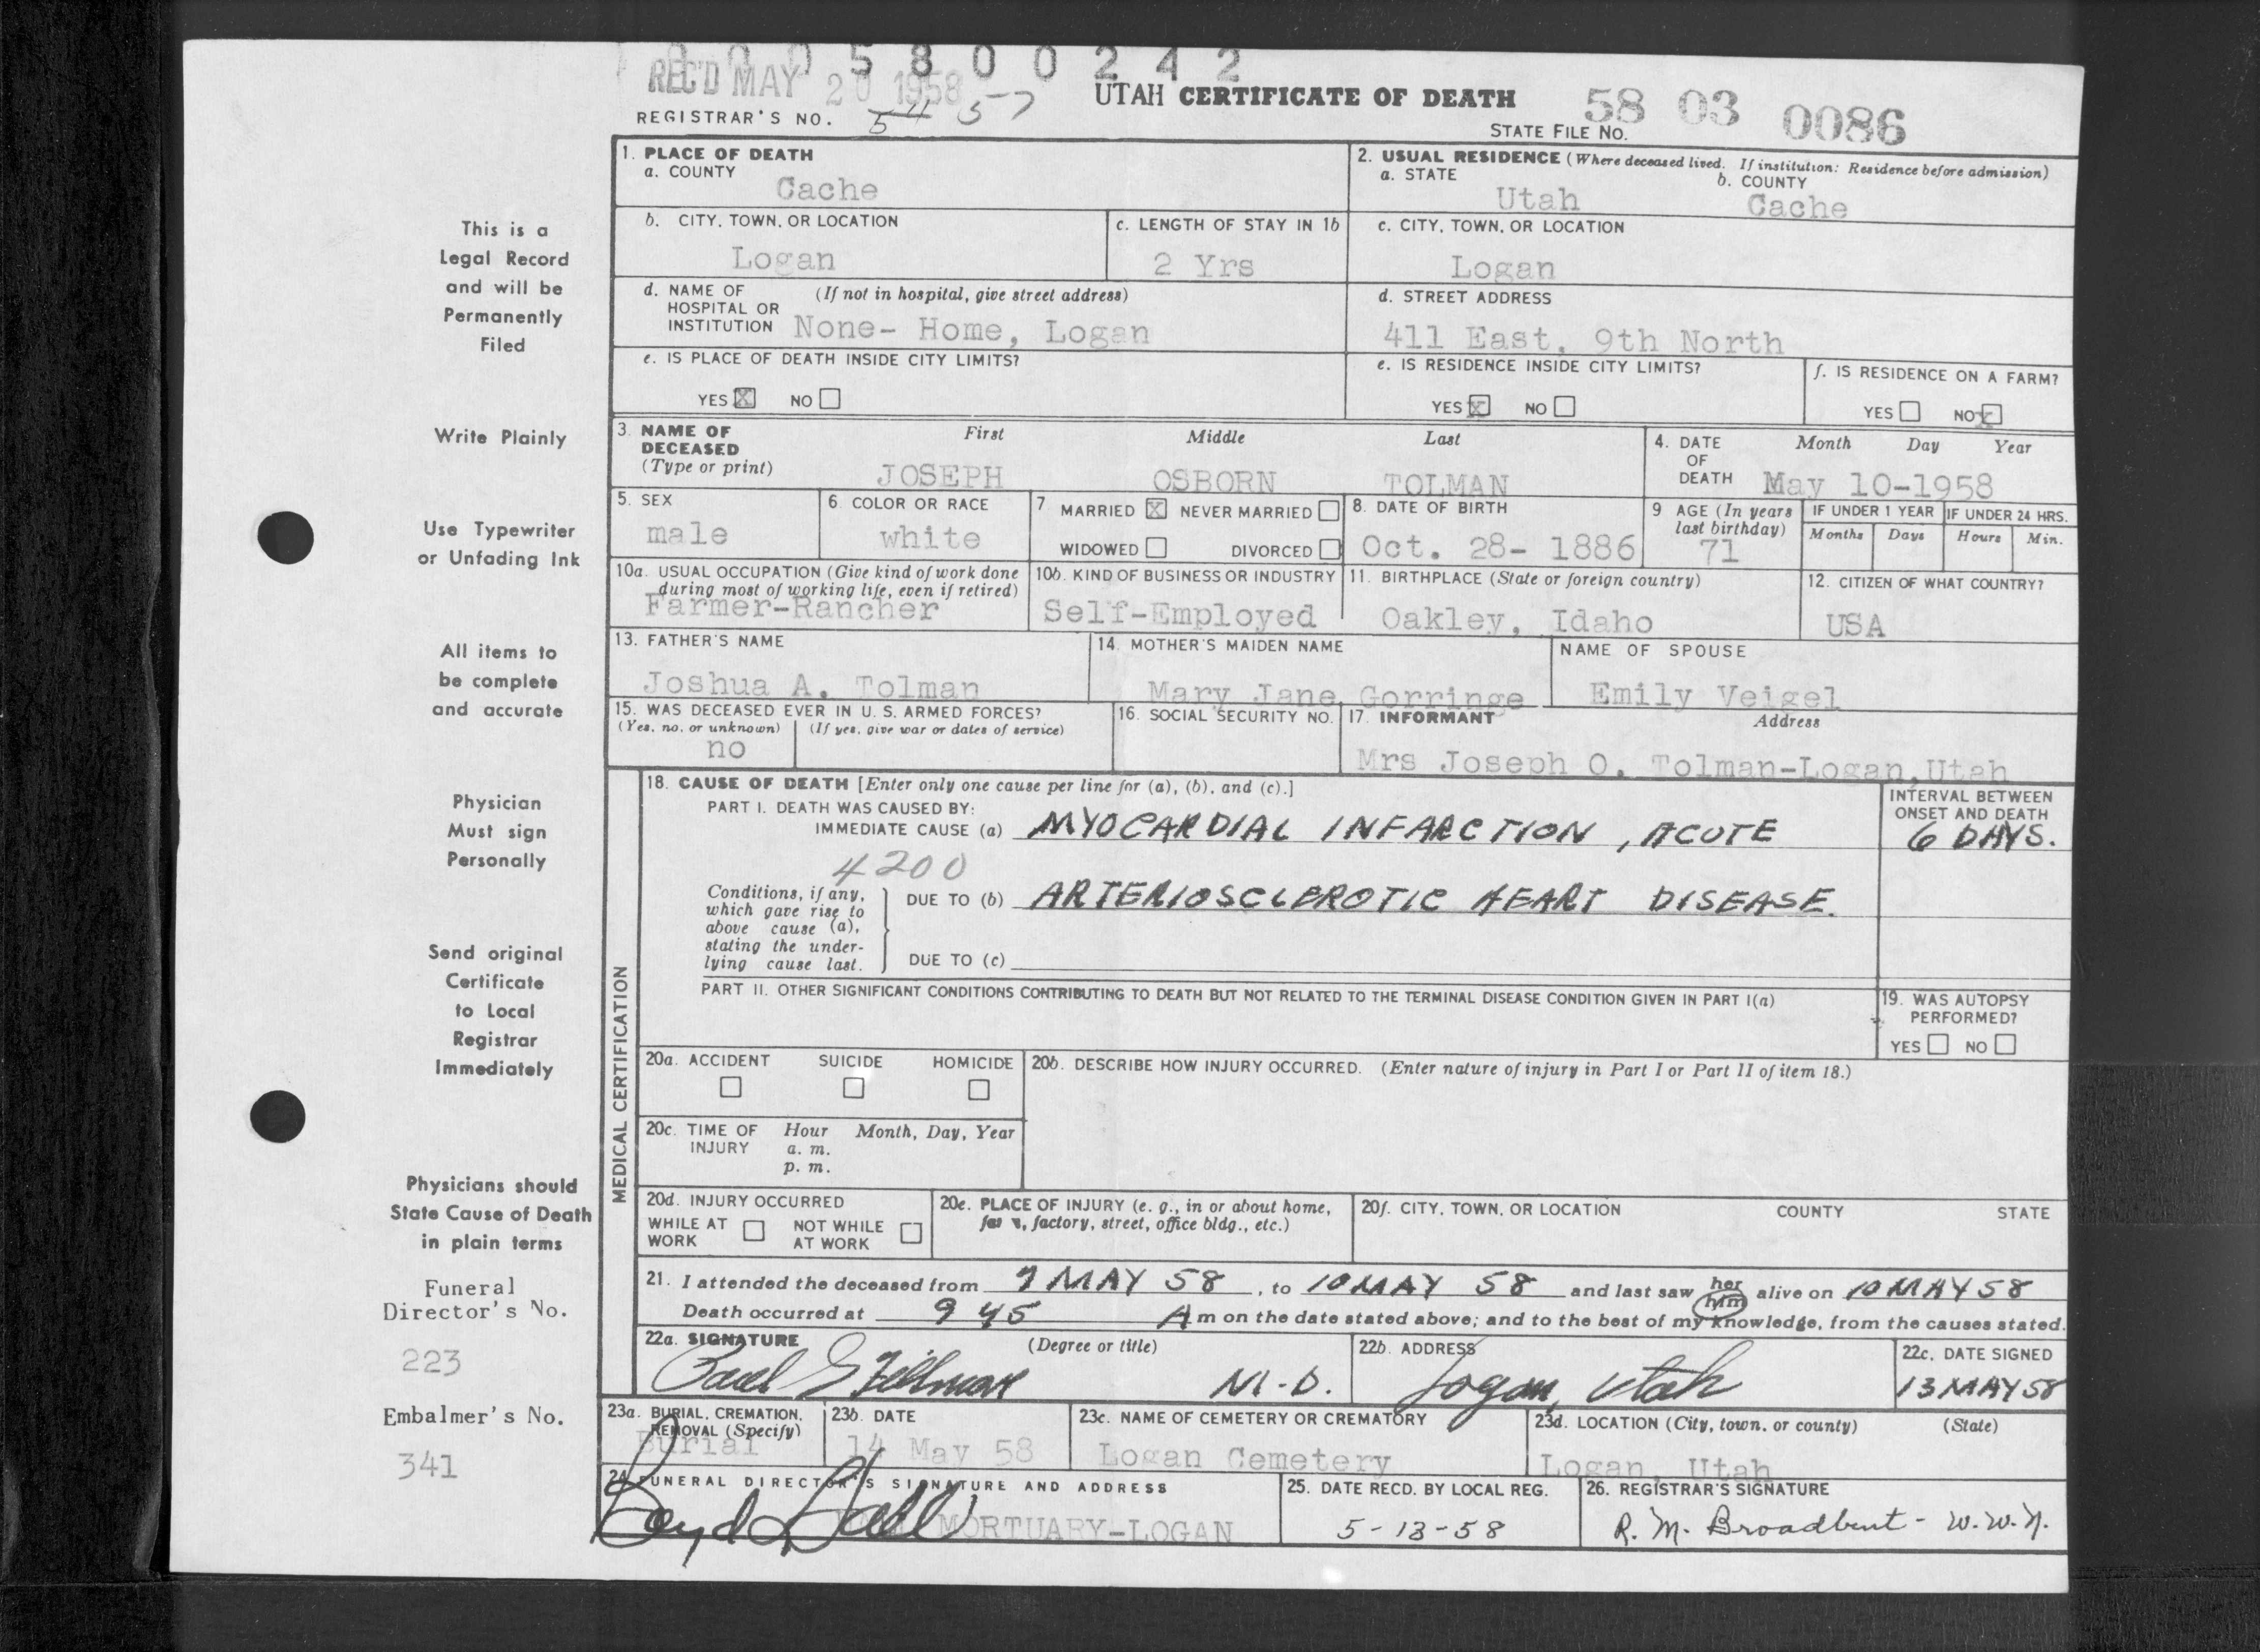 0 0 0 5 8 0 0 2 4 2
REC'D MAY 20 1958
REGISTRAR'S NO. 54 57
UTAH CERTIFICATE OF DEATH
STATE FILE NO. 58 03 0086
This is a
Legal Record
and will be
Permanently
Filed
Write Plainly
Use Typewriter
or Unfading Ink
All items to
be complete
and accurate
Physician
Must sign
Personally
Send original
Certificate
to Local
Registrar
Immediately
Physicians should
State Cause of Death
in plain terms
Funeral
Director's No.
223
Embalmer's No.
341
1. PLACE OF DEATH
a. COUNTY
Cache
2. USUAL RESIDENCE (Where deceased lived. If institution: Residence before admission)
a. STATE
Utah
b. COUNTY
Cache
b. CITY, TOWN, OR LOCATION
Logan
c. LENGTH OF STAY IN 1b
2 Yrs
c. CITY, TOWN, OR LOCATION
Logan
d. NAME OF (If not in hospital, give street address)
HOSPITAL OR
INSTITUTION None- Home, Logan
d. STREET ADDRESS
411 East, 9th North
e. IS PLACE OF DEATH INSIDE CITY LIMITS?
YES X NO
e. IS RESIDENCE INSIDE CITY LIMITS?
YES X NO
f. IS RESIDENCE ON A FARM?
YES NO X
3. NAME OF
DECEASED
(Type or print)
First Middle Last
JOSEPH OSBORN TOLMAN
4. DATE
OF
DEATH
Month Day Year
May 10-1958
5. SEX
male
6. COLOR OR RACE
white
7 MARRIED X NEVER MARRIED
WIDOWED DIVORCED
8. DATE OF BIRTH
Oct. 28- 1886
9 AGE (In years
last birthday)
71
IF UNDER 1 YEAR
Months Days
IF UNDER 24 HRS.
Hours Min.
10a. USUAL OCCUPATION (Give kind of work done
during most of working life, even if retired)
Farmer-Rancher
10b. KIND OF BUSINESS OR INDUSTRY
Self-Employed
11. BIRTHPLACE (State or foreign country)
Oakley, Idaho
12. CITIZEN OF WHAT COUNTRY?
USA
13. FATHER'S NAME
Joshua A. Tolman
14. MOTHER'S MAIDEN NAME
Mary Jane Gorringe
NAME OF SPOUSE
Emily Veigel
15. WAS DECEASED EVER IN U. S. ARMED FORCES?
(Yes, no, or unknown) (If yes, give war or dates of service)
no
16. SOCIAL SECURITY NO.
17. INFORMANT Address
Mrs Joseph O. Tolman-Logan,Utah
MEDICAL CERTIFICATION
18. CAUSE OF DEATH [Enter only one cause per line for (a), (b), and (c).]
PART I. DEATH WAS CAUSED BY:
IMMEDIATE CAUSE (a) MYOCARDIAL INFARCTION, ACUTE
INTERVAL BETWEEN
ONSET AND DEATH
6 DAYS.
4200
Conditions, if any,
which gave rise to
above cause (a),
stating the under-
lying cause last.
DUE TO (b) ARTERIOSCLEROTIC HEART DISEASE.
DUE TO (c)
PART II. OTHER SIGNIFICANT CONDITIONS CONTRIBUTING TO DEATH BUT NOT RELATED TO THE TERMINAL DISEASE CONDITION GIVEN IN PART I(a)
19. WAS AUTOPSY
PERFORMED?
YES NO
20a. ACCIDENT SUICIDE HOMICIDE
20b. DESCRIBE HOW INJURY OCCURRED. (Enter nature of injury in Part I or Part II of item 18.)
20c. TIME OF Hour Month, Day, Year
INJURY a. m.
p. m.
20d. INJURY OCCURRED
WHILE AT WORK NOT WHILE AT WORK
20e. PLACE OF INJURY (e. g., in or about home,
factory, street, office bldg., etc.)
20f. CITY, TOWN, OR LOCATION COUNTY STATE
21. I attended the deceased from 7 MAY 58, to 10 MAY 58 and last saw her him alive on 10 MAY 58
Death occurred at 9 45 A m on the date stated above; and to the best of my knowledge, from the causes stated.
22a. SIGNATURE (Degree or title)
Paul M.D.
22b. ADDRESS
Logan, Utah
22c. DATE SIGNED
13 MAY 58
23a. BURIAL, CREMATION,
REMOVAL (Specify)
Burial
23b. DATE
14 May 58
23c. NAME OF CEMETERY OR CREMATORY
Logan Cemetery
23d. LOCATION (City, town, or county) (State)
Logan, Utah
24 FUNERAL DIRECTOR'S SIGNATURE AND ADDRESS
Boyd Hall
MORTUARY-LOGAN
25. DATE RECD. BY LOCAL REG.
5-13-58
26. REGISTRAR'S SIGNATURE
R. M. Broadbent - W.W.N.